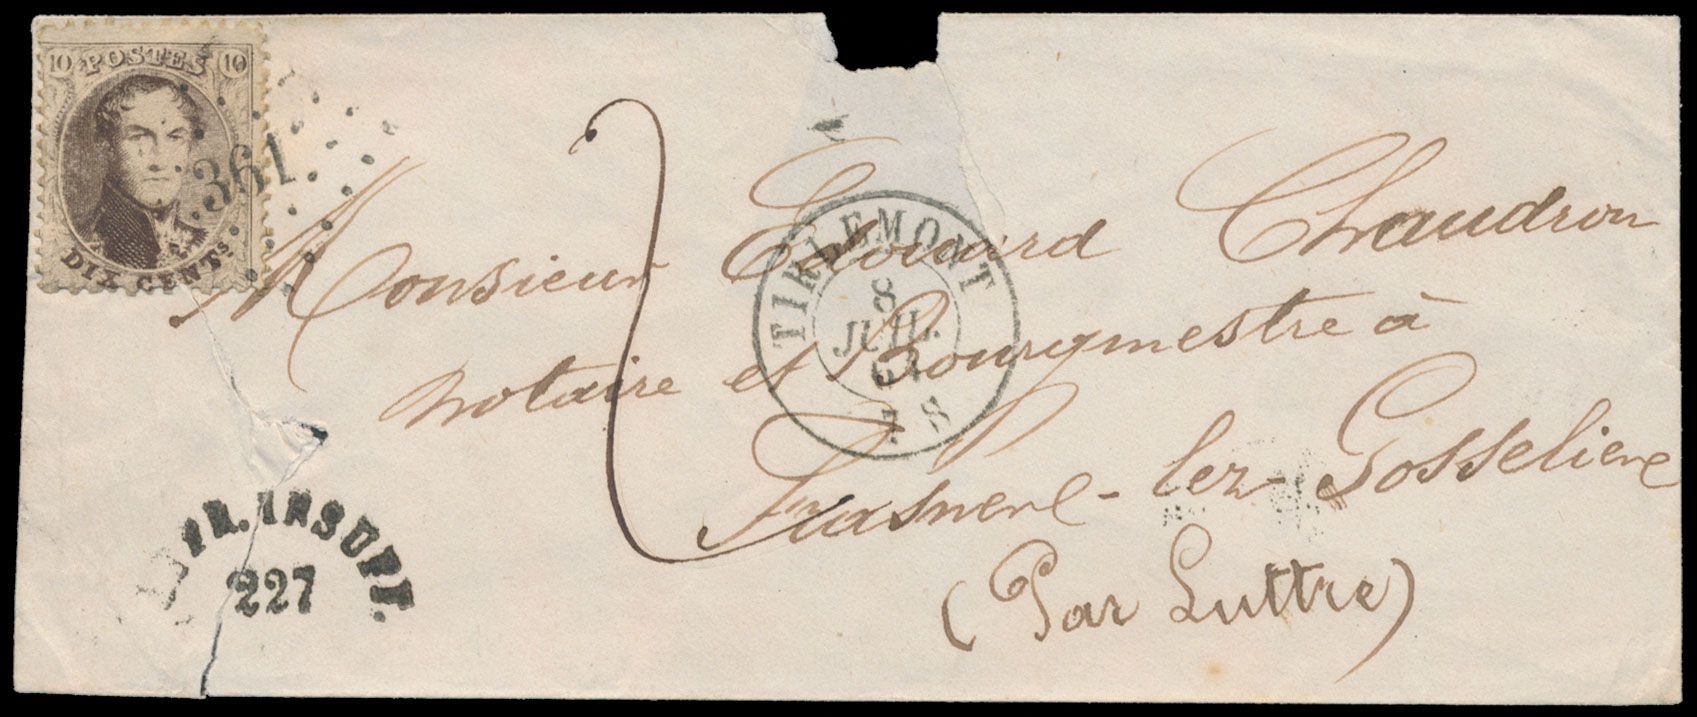 10 POSTES 10
DIX CENTS
361
Monsieur Edouard Chaudron
notaire et Bourgmestre à
Frasnene-lez-Gosseliene
(Par Luttre)
TIRLEMONT
8
JUIL.
7 S
FR. INSUFF.
227
2